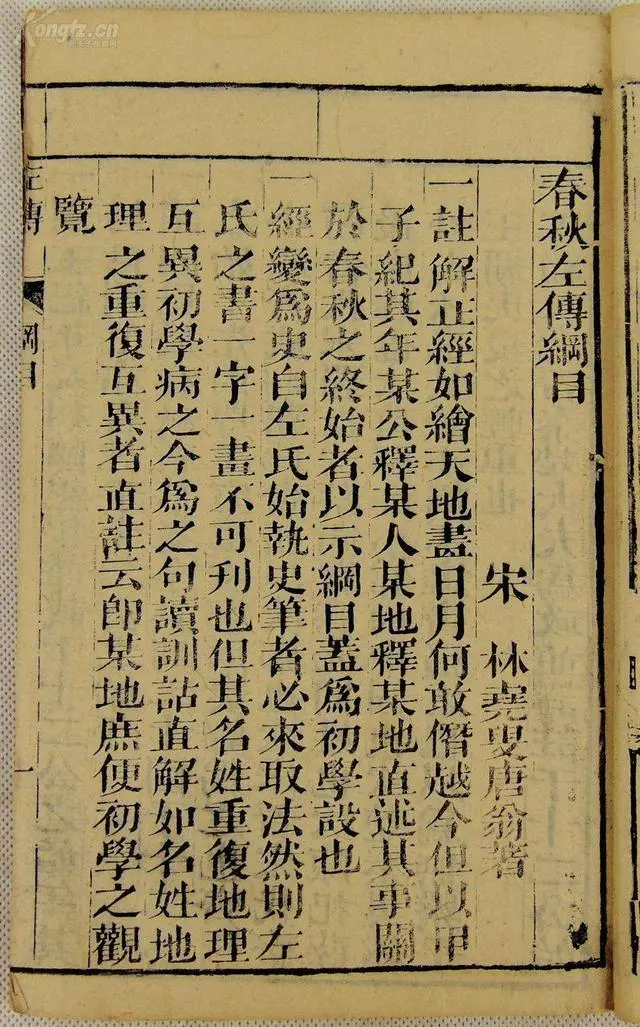 春秋左傳綱目
宋 林堯叟唐翁著
一註解正經如繪天地畫日月何敢僭越今但以甲
子紀其年某公釋某人某地釋某地直述其事關
於春秋之終始者以示綱目蓋爲初學設也
一經變爲史自左氏始執史筆者必來取法然則左
氏之書一字一畫不可刊也但其名姓重復地理
互異初學病之今爲之句讀訓詁直解如名姓地
理之重復互異者直註云即某地庶便初學之觀
覽
左傳 綱目 一
Kongfz.cn